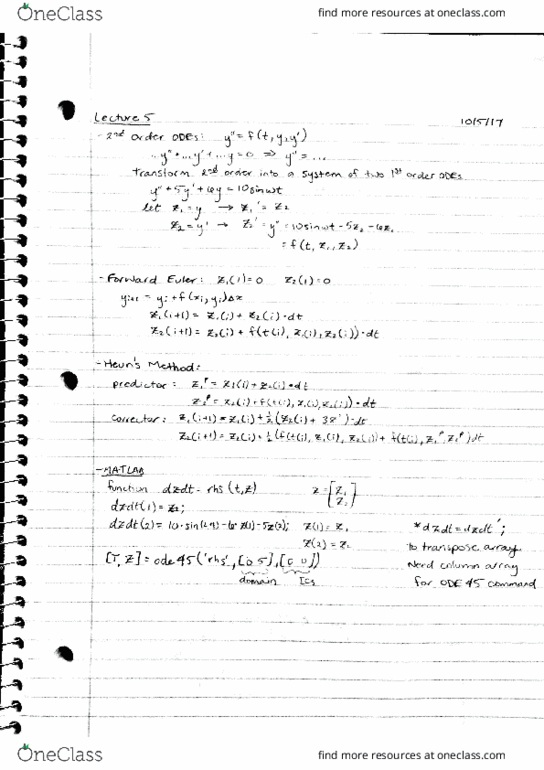 OneClass
find more resources at oneclass.com
Lecture 5
10/5/17
- 2nd Order ODEs: y'' = f(t, y, y')
... y'' + ... y' + ... y = 0 ⇒ y'' = ...
Transform 2nd order into a system of two 1st order ODEs
y'' + 5y' + 6y = 10 sin ωt
let z₁ = y → z₁' = z₂
z₂ = y' → z₂' = y'' = 10 sin ωt - 5z₂ - 6z₁
= f(t, z₁, z₂)
- Forward Euler: z₁(1) = 0 z₂(1) = 0
yᵢ₊₁ = yᵢ + f(xᵢ, yᵢ)Δx
z₁(i+1) = z₁(i) + z₂(i)·dt
z₂(i+1) = z₂(i) + f(t(i), z₁(i), z₂(i))·dt
- Heun's Method:
predictor: z₁ᴾ = z₁(i) + z₂(i)·dt
z₂ᴾ = z₂(i) + f(t(i), z₁(i), z₂(i))·dt
corrector: z₁(i+1) = z₁(i) + ½(z₂(i) + )·dt
z₂(i+1) = z₂(i) + ½(f(t(i), z₁(i), z₂(i)) + f(t(i), z₁ᴾ, z₂ᴾ)dt
- MATLAB
function dzdt = rhs (t, z) z = [z₁
z₂]
dzdt(1) = z₂;
dzdt(2) = 10·sin( - 6· z(1) - 5z(2); z(1) = z₁ * dzdt = dzdt';
z(2) = z₂ to transpose array
[T, Z] = ode45('rhs', [0 5], [0 0]) Need column array
domain ICs for ODE 45 command
OneClass
find more resources at oneclass.com